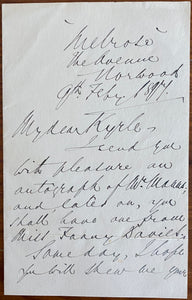 Melrose
The Avenue
Norwood
9th Feby 1897.
My dear Kyrle,
I send you
with pleasure an
autograph of Mr Manns,
and later on, you
shall have one from
Miss Fanny Davies.
Some day, I hope
you will shew me your